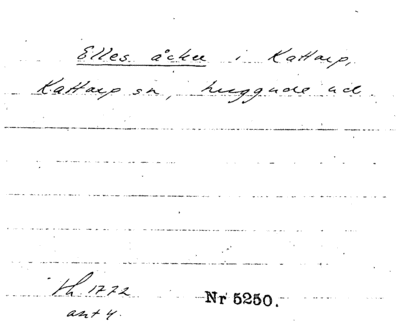 Elles åcker i Kattarp,
Kattarp sn, Luggude hd.
th 1772
ant 4.
Nr 5250.